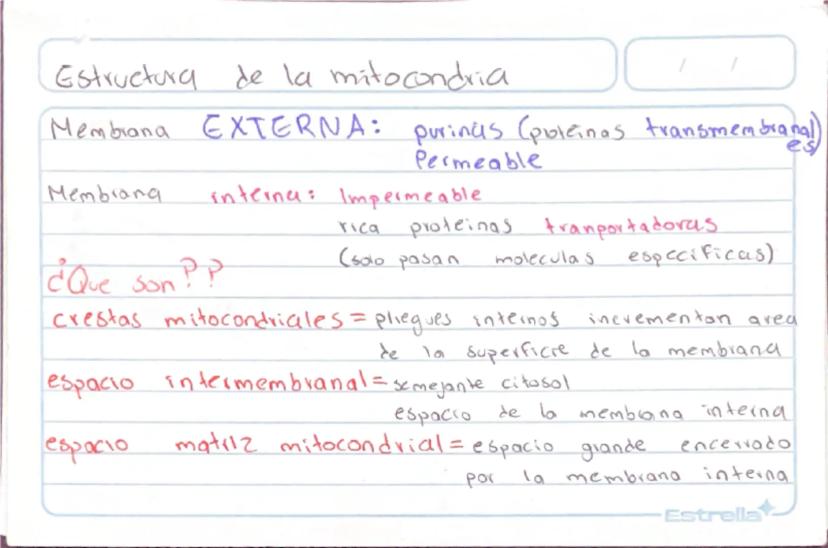 Estructura de la mitocondria
/ /
Membrana EXTERNA: purinas (proteinas transmembranales)
Permeable
Membrana interna: Impermeable
rica proteinas tranportadoras
(solo pasan moleculas especificas)
¿Que son??
crestas mitocondriales = pliegues internos incrementan area
de la superficie de la membrana
espacio intermembranal = semejante citosol
espacio de la membrana interna
espacio matriz mitocondrial = espacio grande encerrado
por la membrana interna
Estrella